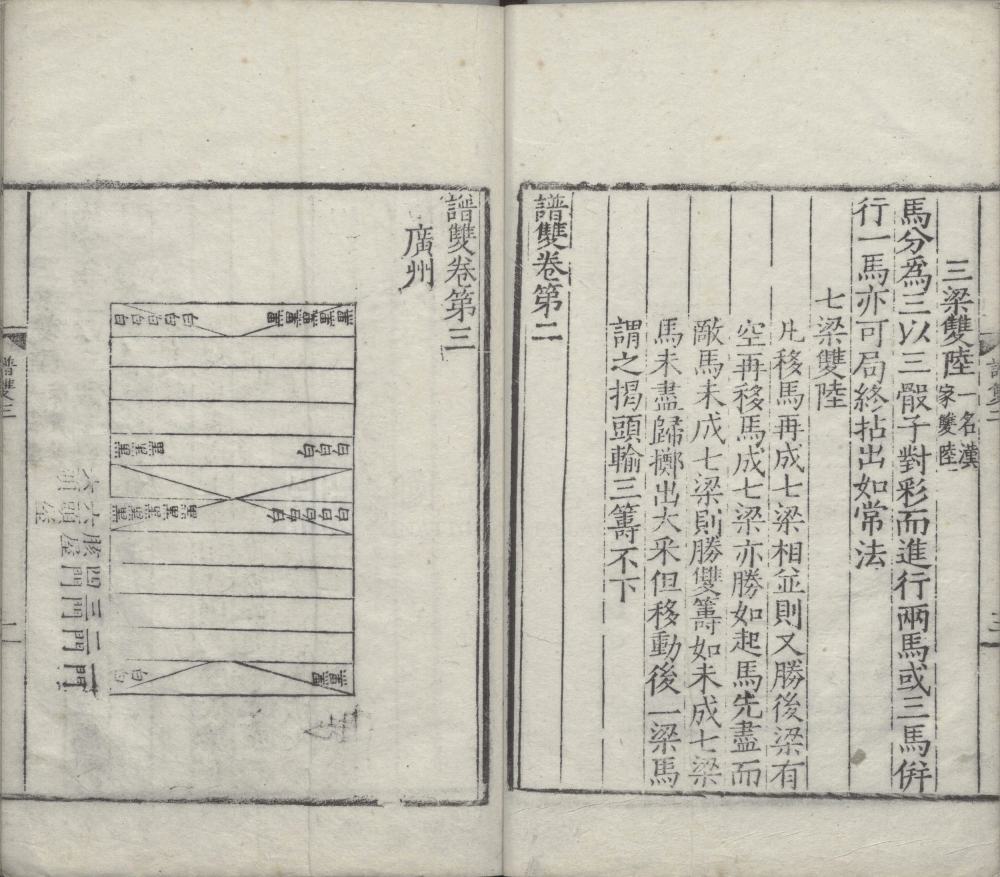 三梁雙陸 一名漢
家雙陸
馬分爲三以三骰子對彩而進行兩馬或三馬併
行一馬亦可局終拈出如常法
七梁雙陸
凡移馬再成七梁相並則又勝後梁有
空再移馬成七梁亦勝如起馬先盡而
敵馬未成七梁則勝雙籌如未成七梁
馬未盡歸擲出大采但移動後一梁馬
謂之揭頭輸三籌不下
譜雙卷第二
譜雙卷第三
廣州
白白白白白
黑黑黑黑黑
黑黑黑
白白白
黑黑黑黑黑
白白白白白
白白
黑黑
一門
二門
三門
四門
六頭
譜雙三
一